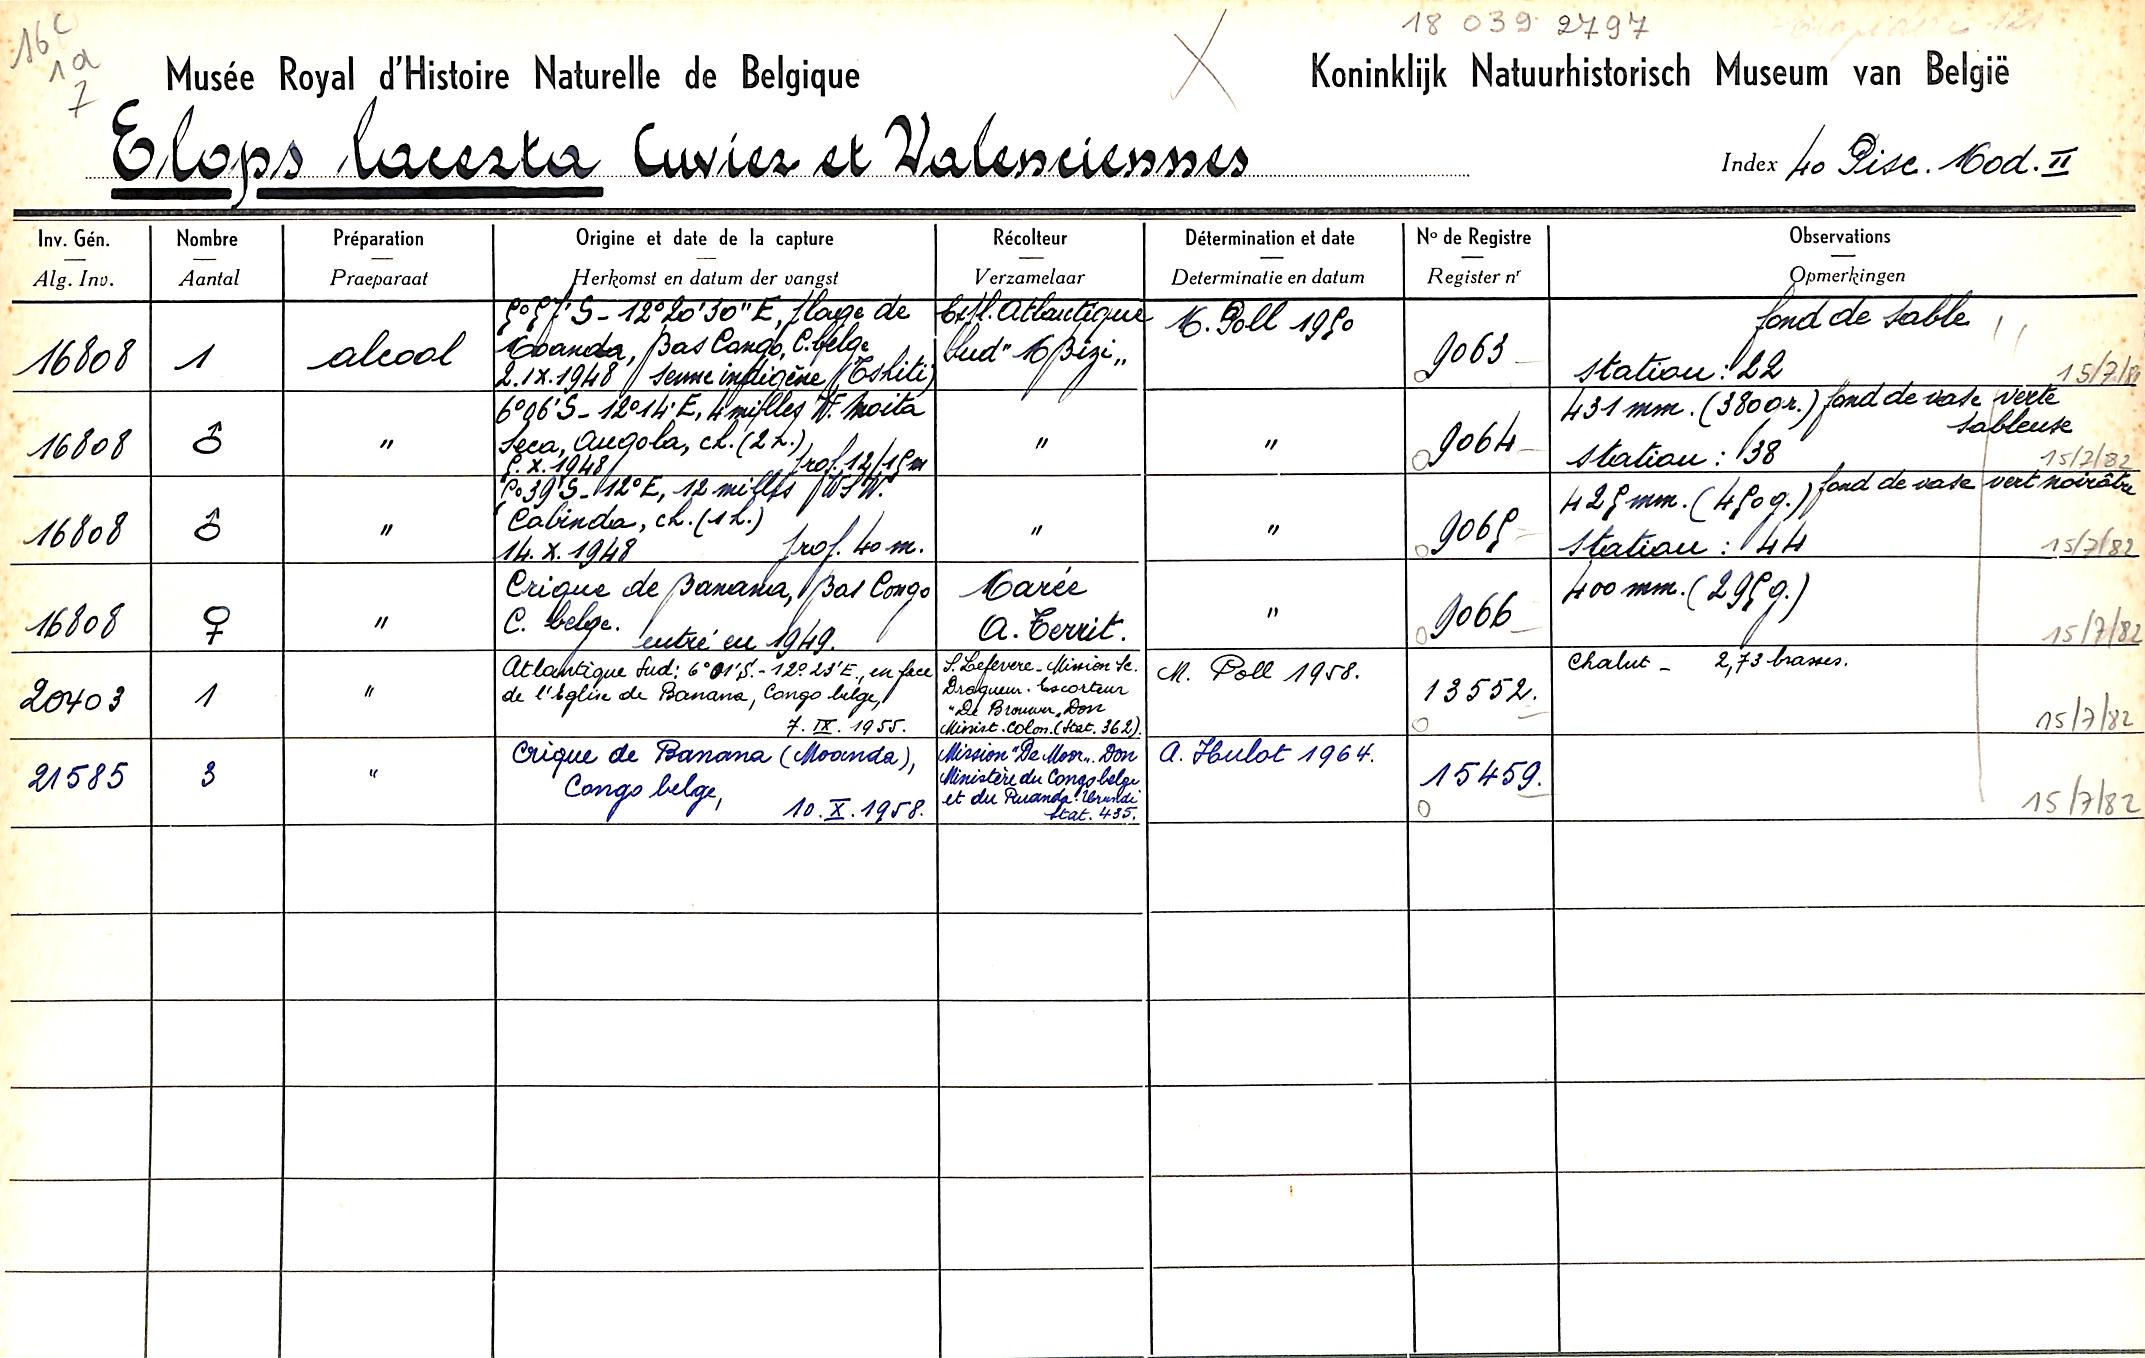 16c
1a
7
18 039 2797
Musée Royal d'Histoire Naturelle de Belgique
Koninklijk Natuurhistorisch Museum van België
Elops lacerta Cuvier et Valenciennes
Index 40 Pisc. Mod. II
Inv. Gén. Nombre Préparation Origine et date de la capture Récolteur Détermination et date No de Registre Observations
Alg. Inv. Aantal Praeparaat Herkomst en datum der vangst Verzamelaar Determinatie en datum Register nr Opmerkingen
16808 1 alcool
5°57'S - 12°20'30"E, plage de
Moanda, Bas Congo, C. belge
2.IX.1948 senne indigène (Tshiti)
Exp. Atlantique
Sud "M'Bizi"
M. Poll 1950
9063
fond de sable
station: 22
15/7/82
16808 ♂ "
6°06'S - 12°14'E, 4 milles W. Moita
Seca, Angola, ch. (2 h.)
5.X.1948 prof. 12/15 m
"
"
9064
431 mm. (380 gr.) fond de vase verte
sableuse
station: 38
15/7/82
16808 ♂ "
5°39'S - 12°E, 12 milles WSW.
Cabinda, ch. (1 h.)
14.X.1948 prof. 40 m.
"
"
9065
425 mm. (450 g.) fond de vase vert noirâtre
station: 44
15/7/82
16808 ♀ "
Crique de Banana, Bas Congo
C. belge.
entré en 1949.
Marée
A. Territ.
"
9066
400 mm. (295 g.)
15/7/82
20403 1 "
Atlantique Sud: 6°01'S. - 12°23'E., en face
de l'Eglise de Banana, Congo belge,
7. IX. 1955.
S. Lefevere - Mission Sc.
Dragueur. Escorteur
"De Brouwer" Don
Minist. Colon. (Stat. 362).
M. Poll 1958.
13552.
Chalut - 2,73 brasses.
15/7/82
21585 3 "
Crique de Banana (Moanda),
Congo belge,
10. X. 1958.
Mission "De Moor". Don
Ministère du Congo belge
et du Ruanda-Urundi
Stat. 435.
A. Hulot 1964.
15459.
15/7/82